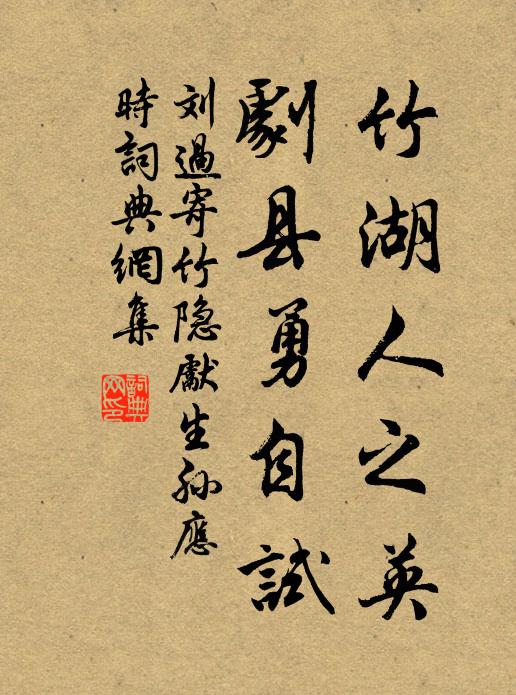 竹湖人之英
劇县勇自試
刘過寄竹隐獻生孙應
時詞典網集
詞典網印